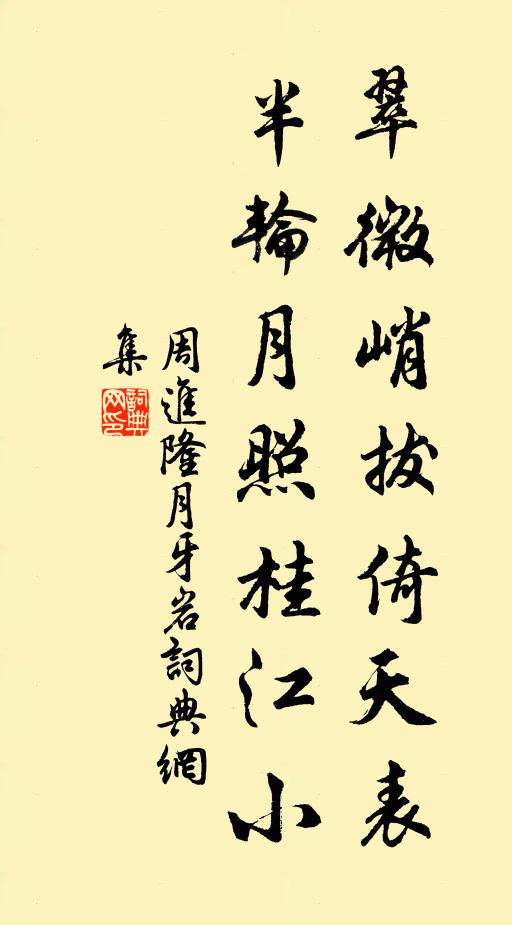 翠微峭拔倚天表
半輪月照桂江小
周進隆月牙岩詞典網
集
詞典網印